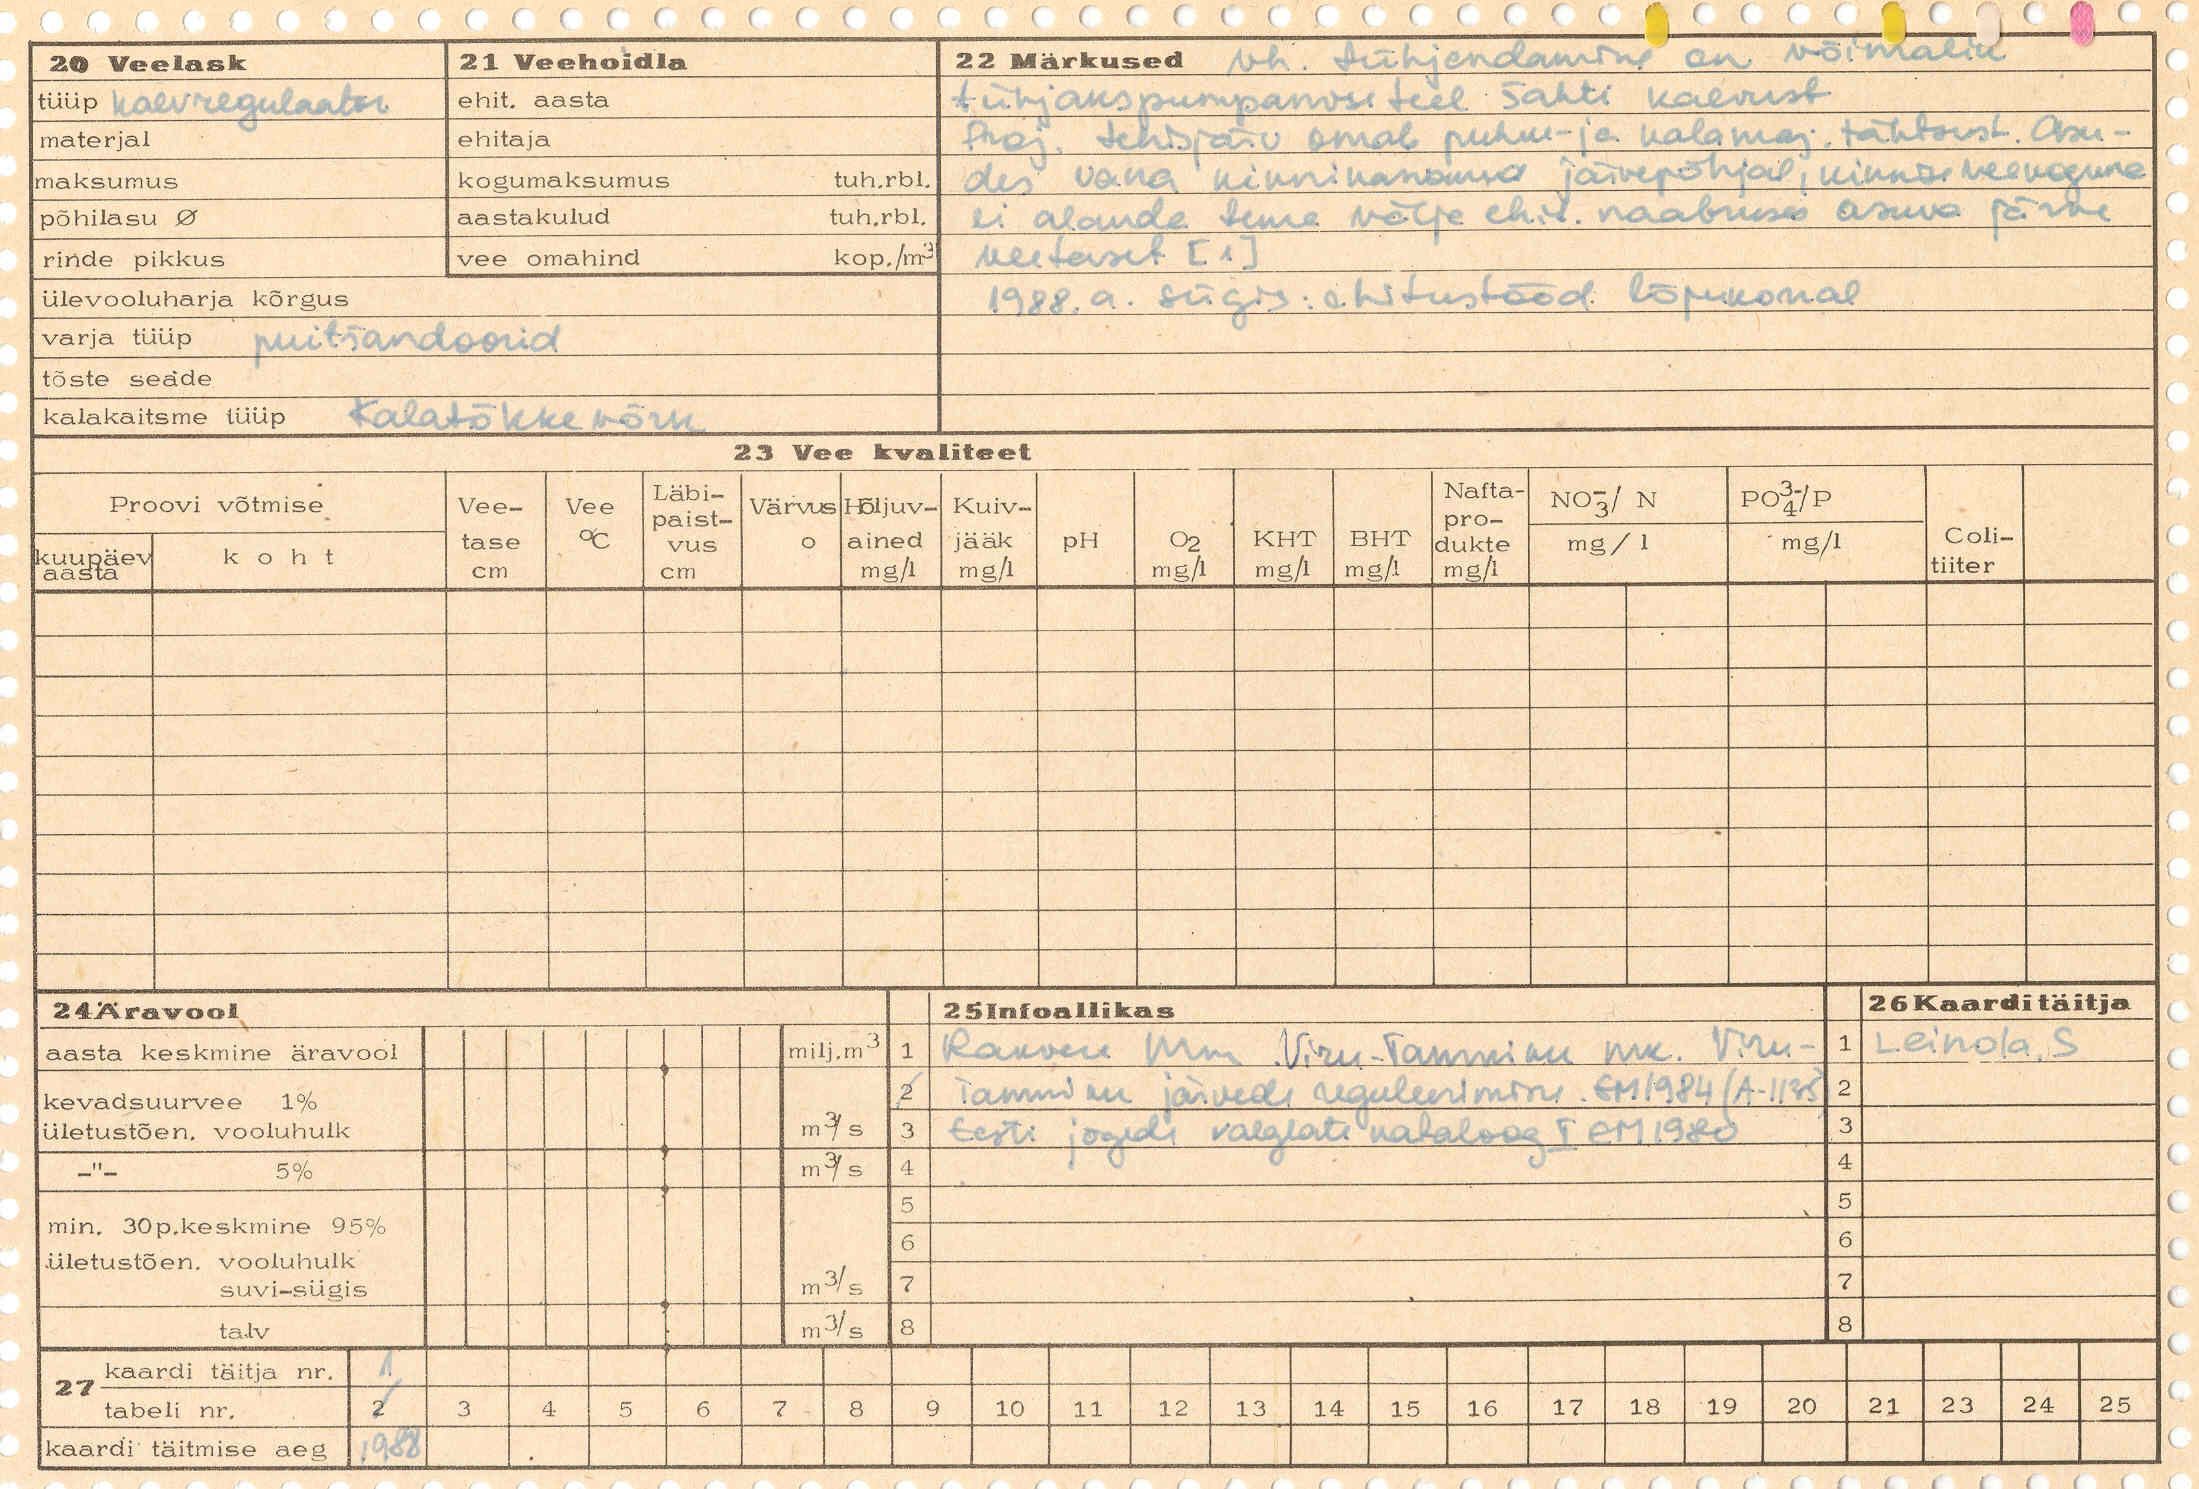 20 Veelask
tüüp kaevregulaator
materjal
maksumus
põhilasu Ø
rinde pikkus
ülevooluharja kõrgus
varja tüüp puitšandoorid
tõste seade
kalakaitsme tüüp Kalatõkkevõrk
21 Veehoidla
ehit. aasta
ehitaja
kogumaksumus tuh.rbl.
aastakulud tuh.rbl.
vee omahind kop./m³
22 Märkused Vh. tühjendamine on võimalik
tühjakspumpamise teel šahti kaevust
Proj. tehisjärv omab puhke- ja kalamaj. tähtsust. Asu-
des vana kinnikasvanud järvepõhjal, kinnise veekoguna
ei alanda tema välja ehit. naabruses asuva järve
veetaset [1]
1988. a. sügis: ehitustööd lõpukorral
23 Vee kvaliteet
Proovi võtmise
kuupäev aasta
koht
Vee-tase cm
Vee °C
Läbi-paist-vus cm
Värvus o
Hõljuv-ained mg/l
Kuiv-jääk mg/l
pH
O2 mg/l
KHT mg/l
BHT mg/l
Nafta-pro-dukte mg/l
NO3-/ N mg/l
PO4 3-/P mg/l
Coli-tiiter
24 Äravool
aasta keskmine äravool milj.m³
kevadsuurvee 1%
ületustõen. vooluhulk m³/s
-"- 5% m³/s
min. 30p.keskmine 95%
ületustõen. vooluhulk
suvi-sügis m³/s
talv m³/s
25 Infoallikas
1 Rakvere Mm Viru-Tammiku mk. Viru-
2 Tammiku järvede reguleerimine. EM 1984 (A-1135)
3 Eesti jõgede valglate kataloog I EM 1980
4
5
6
7
8
26 Kaardi täitja
1 Leinola, S
2
3
4
5
6
7
8
27 kaardi täitja nr. 1
tabeli nr. 2 3 4 5 6 7 8 9 10 11 12 13 14 15 16 17 18 19 20 21 23 24 25
kaardi täitmise aeg 1988